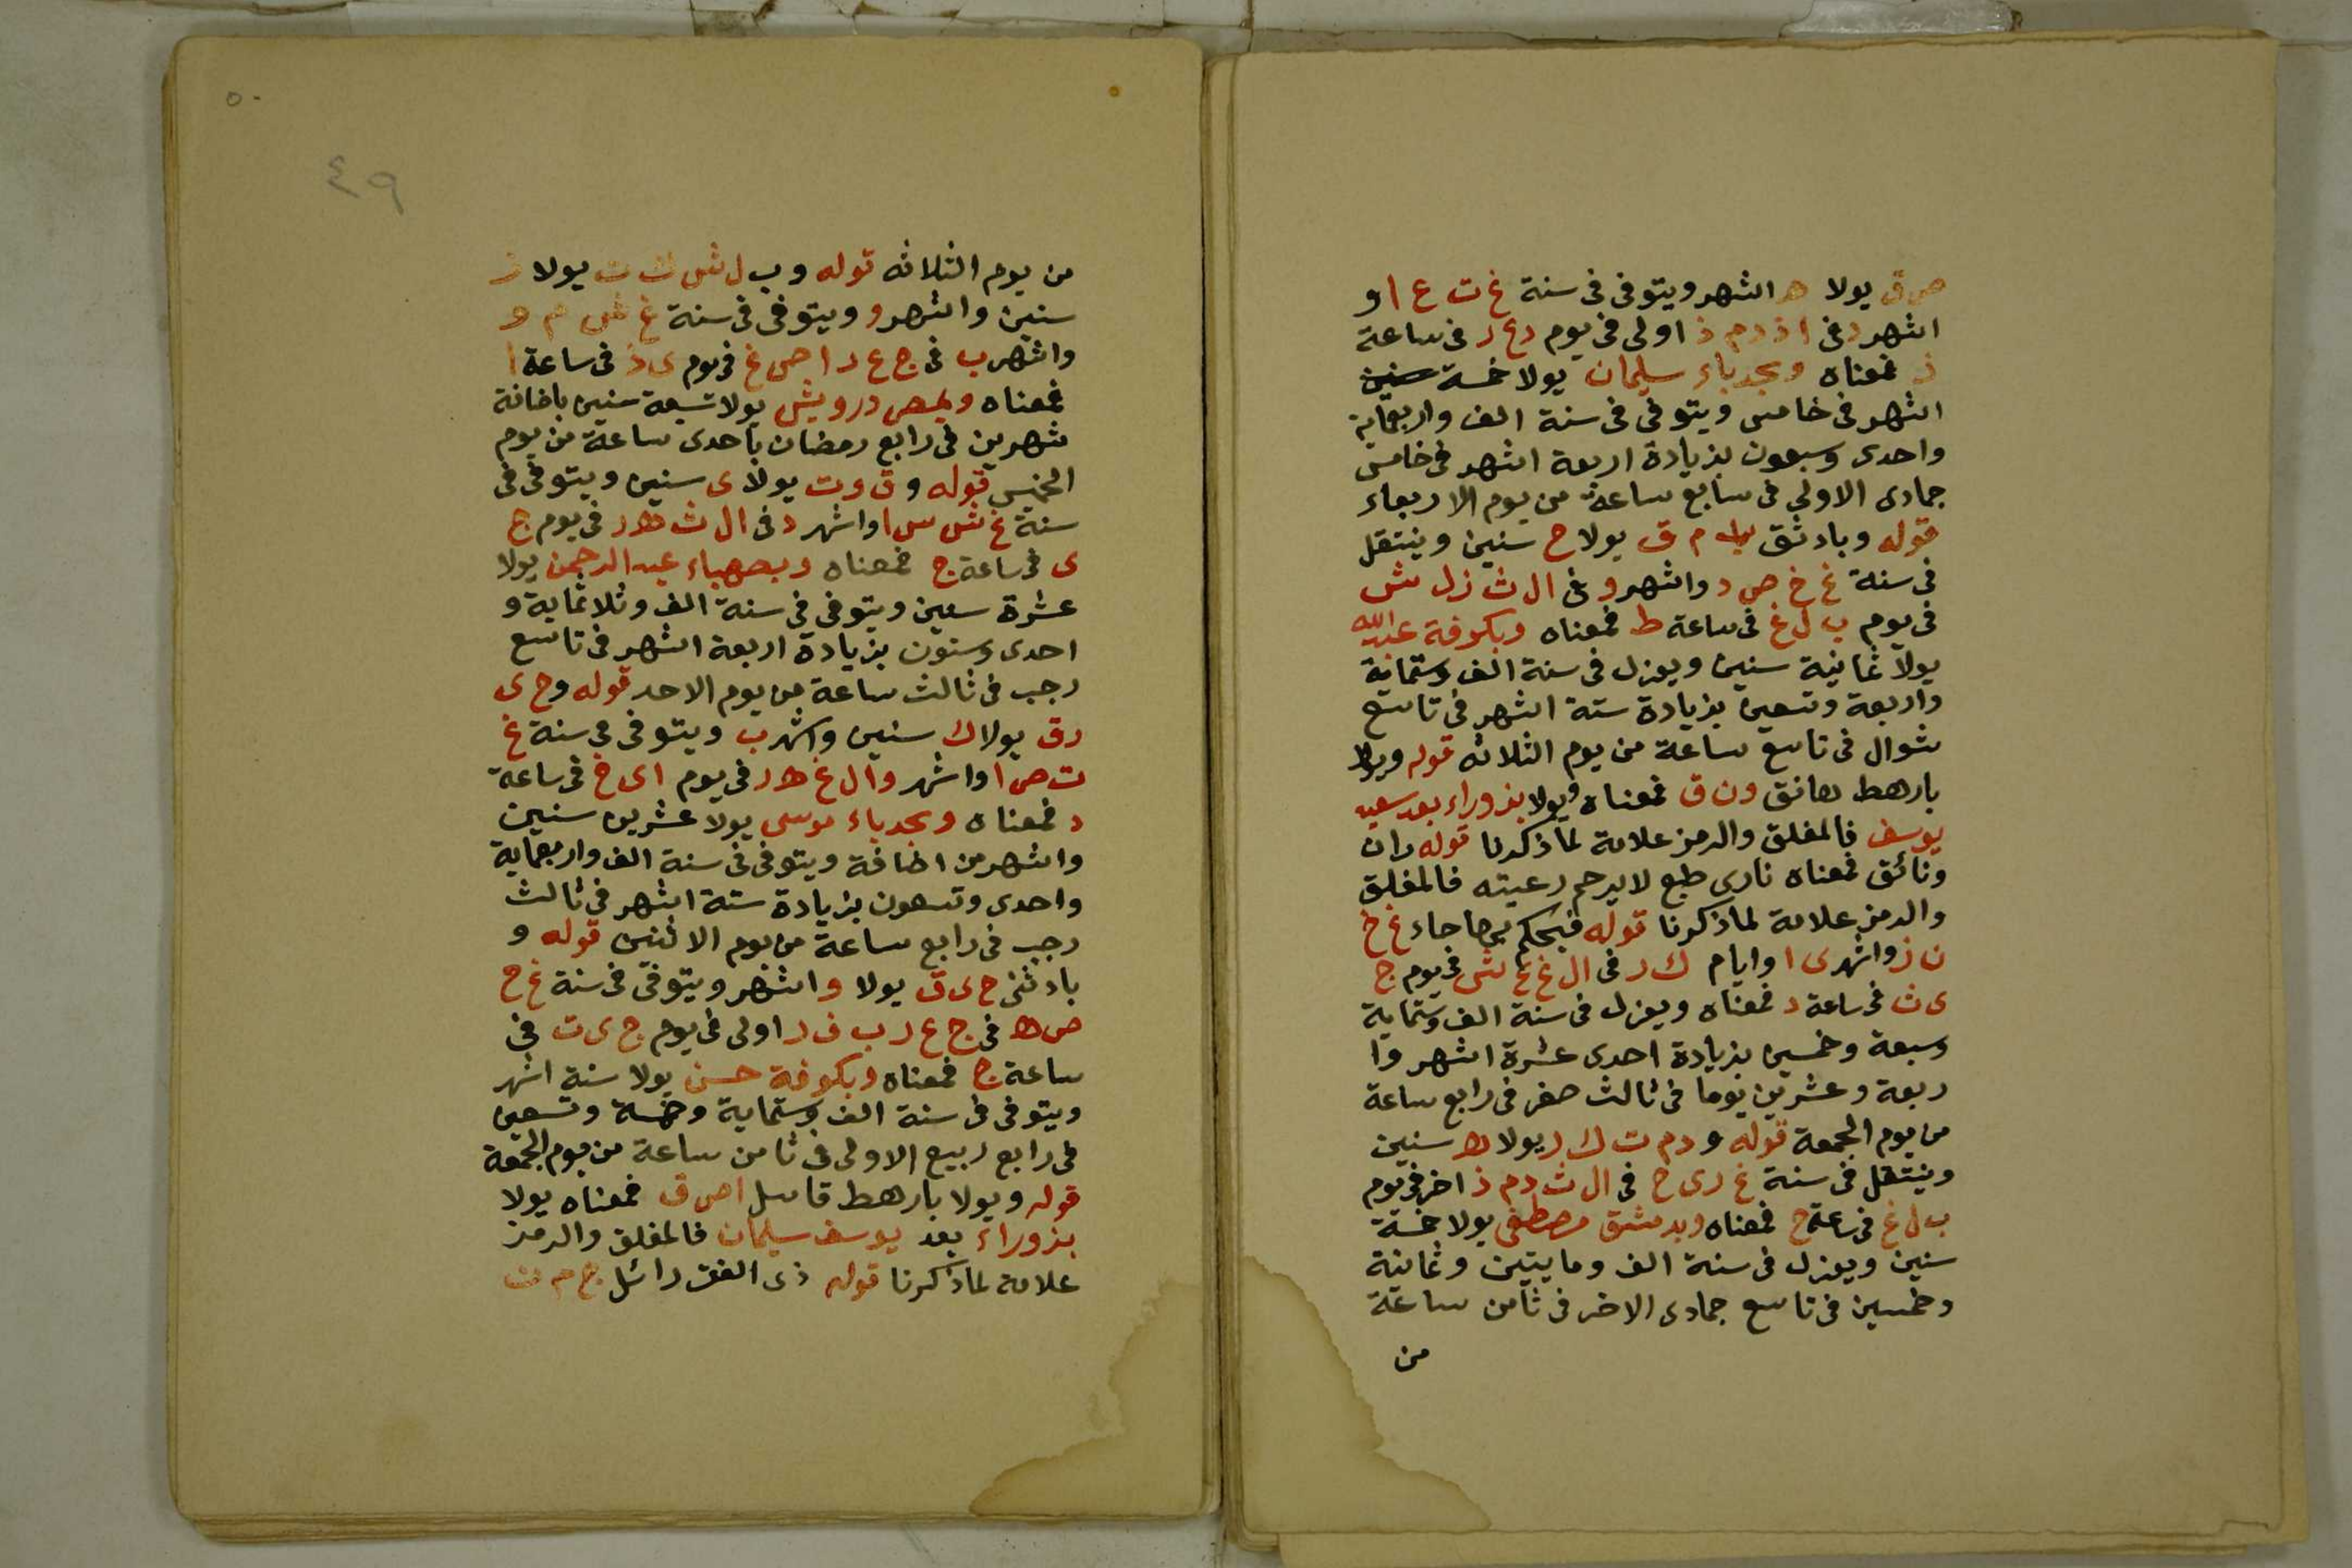 ص ق يولا ه اشهر ويتوفى فى سنة غ ت ع ا و
اشهر د فى ا ذ د م ذ اولى فى يوم د ع ر فى ساعة
ذ فمعناه وبجدباء سليمان يولا خمسة سنين
اشهر فى خامس ويتوفى فى سنة الف واربعماية
واحدى وسبعون بزيادة اربعة اشهر فى خامس
جمادى الاولى فى سابع ساعة من يوم الاربعاء
قوله وبادثق م ق يولا ح سنين وينتقل
فى سنة غ خ ص د واشهر و فى ال ث ز ل ش
فى يوم ب ل غ فى ساعة ط فمعناه وبكوفة عبدالله
يولا ثمانية سنين ويعزل فى سنة الف وستماية
واربعة وتسعين بزيادة ستة اشهر فى تاسع
شوال فى تاسع ساعة من يوم الثلاثه قوله ويولا
بارهط ون ق فمعناه ويولا بزوراء بعد سعيد
يوسف فالمغلق والرمز علامة لما ذكرنا قوله ران
ونائق فمعناه نارى طبع لا يرحم رعيته فالمغلق
والرمز علامة لما ذكرنا قوله فيحكم بها جاء غ خ
ن ز واشهر ى ا وايام ك د فى ال غ غ ش فى يوم ج
ى ث فى ساعة د فمعناه ويعزل فى سنة الف وستماية
وسبعة وخمسين بزيادة احدى عشرة اشهر وا
ربعة وعشرين يوما فى ثالث صفر فى رابع ساعة
من يوم الجمعة قوله و دم ت ك ر يولا ه سنين
وينتقل فى سنة غ ر ى ح فى ال ث د م ذ اخر فى يوم
ب ل غ فى ساعة ح فمعناه وبدمشق مصطفى يولا خمسة
سنين ويعزل فى سنة الف ومايتين وثمانية
وخمسين فى تاسع جمادى الاخر فى ثامن ساعة
من
٥٠
٤٩
من يوم الثلاثه قوله و ب ل ش ك ت يولا ز
سنين واشهر و ويتوفى فى سنة غ ش م و
واشهر ب فى ج ع د ا ص غ فى يوم ى ذ فى ساعة ا
فمعناه وبمصر درويش يولا تسعة سنين باضافة
شهرين فى رابع رمضان باحدى ساعة من يوم
الخميس قوله و ق و ت يولا ى سنين ويتوفى فى
سنة غ ش س ا واشهر د فى ال ث ه ر فى يوم ج
ى فى ساعة ج فمعناه وبصهباء عبد الرحمن يولا
عشرة سنين ويتوفى فى سنة الف وثلاثماية و
احدى وستون بزيادة اربعة اشهر فى تاسع
رجب فى ثالث ساعة من يوم الاحد قوله و ح ى
د ق يولا ك سنين واشهر ب ويتوفى فى سنة غ
ت ص ا واشهر و ال غ ه ر فى يوم ا ى خ فى ساعة
د فمعناه وبجدباء موسى يولا عشرين سنين
واشهر من اضافة ويتوفى فى سنة الف واربعماية
واحدى وتسعون بزيادة ستة اشهر فى ثالث
رجب فى رابع ساعة من يوم الاثنين قوله و
بادثنى ح ى ق يولا و اشهر ويتوفى فى سنة غ خ
ص ه فى ج ع ر ب ف ر اولى فى يوم ج ى ت فى
ساعة ج فمعناه وبكوفة حسن يولا ستة اشهر
ويتوفى فى سنة الف وستماية وخمسة وتسعين
فى رابع ربيع الاولى فى ثامن ساعة من يوم الجمعة
قوله ويولا بارهط قاسل ا ص ق فمعناه يولا
بزوراء بعد يوسف سليمان فالمغلق والرمز
علامة لما ذكرنا قوله ذى الفق رائل ج م ت